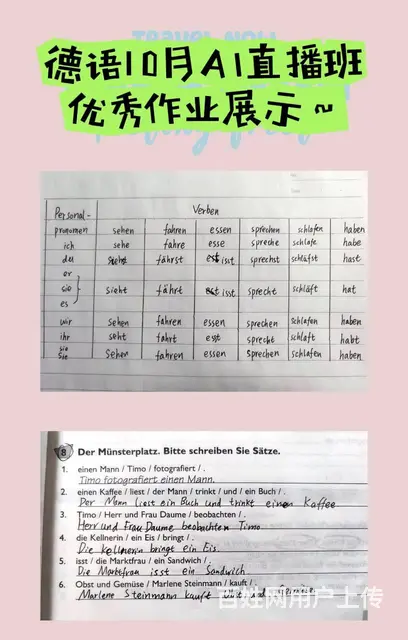 TRAVEL NOW
德语10月A1直播班
优秀作业展示~
Personal- Verben
pronomen sehen fahren essen sprechen schlafen haben
ich sehe fahre esse spreche schlafe habe
du siehst fährst isst sprichst schläfst hast
er
sie sieht fährt isst sprecht schläft hat
es
wir sehen fahren essen sprechen schlafen haben
ihr seht fahrt esst sprecht schlaft habt
sie
Sie sehen fahren essen sprechen schlafen haben
8 Der Münsterplatz. Bitte schreiben Sie Sätze.
1. einen Mann / Timo / fotografiert / .
Timo fotografiert einen Mann.
2. einen Kaffee / liest / der Mann / trinkt / und / ein Buch / .
Der Mann liest ein Buch und trinkt einen Kaffee
3. Timo / Herr und Frau Daume / beobachten / .
Herr und Frau Daume beobachten Timo.
4. die Kellnerin / ein Eis / bringt / .
Die Kellnerin bringt ein Eis.
5. isst / die Marktfrau / ein Sandwich / .
Die Marktfrau isst ein Sandwich
6. Obst und Gemüse / Marlene Steinmann / kauft / .
Marlene Steinmann kauft Obst und Gemüse.
百姓网用户上传